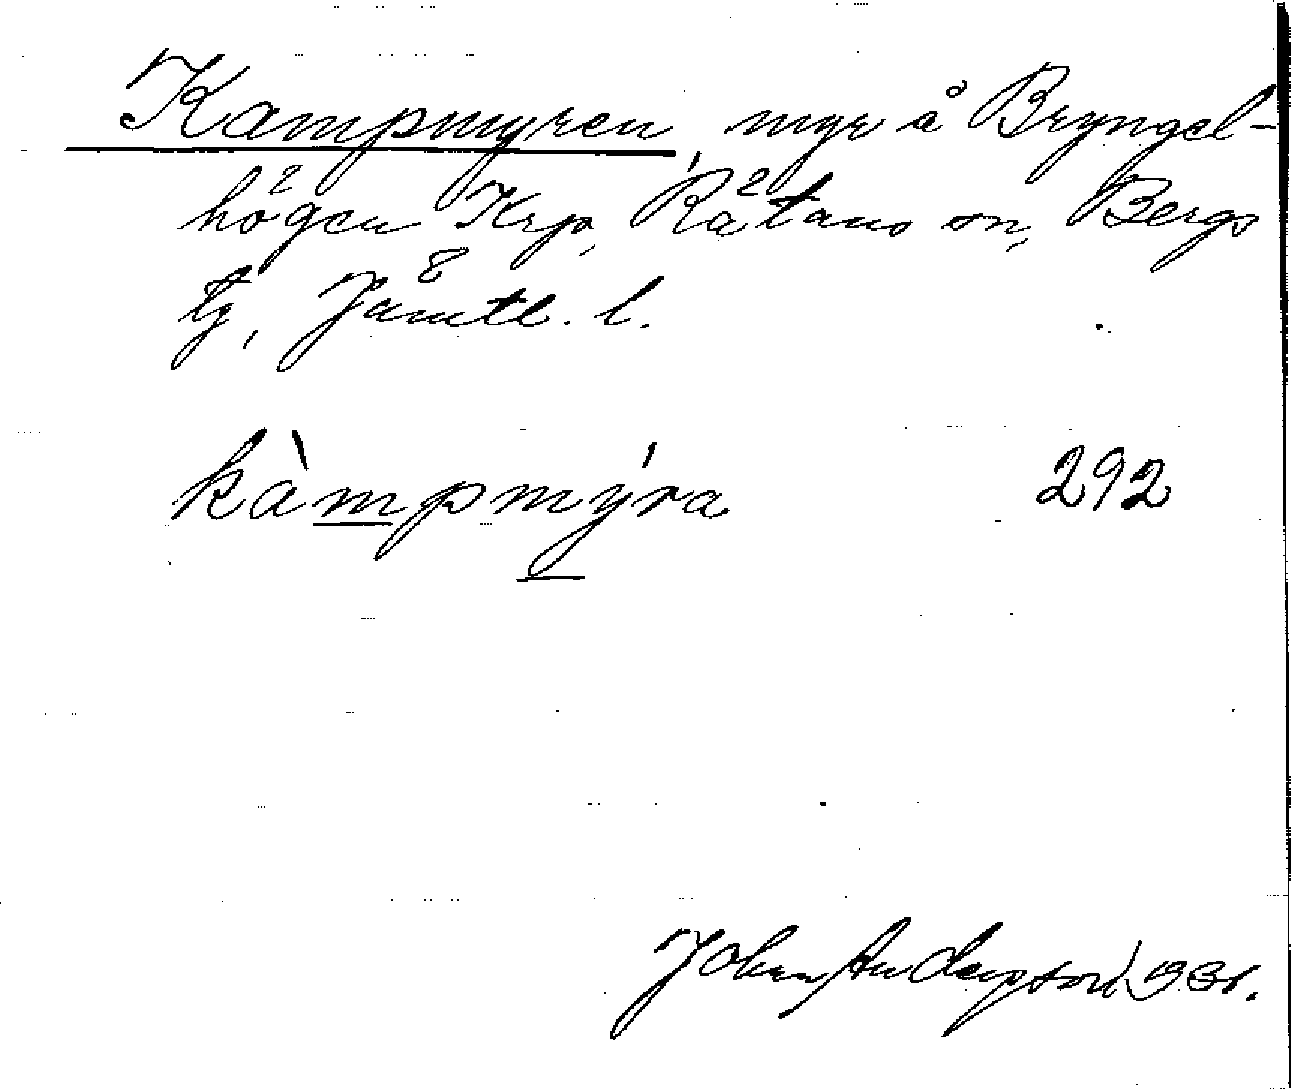 Kampmyren, myr å Bryngel-
högen Krp, Rätans sn, Bergs
tg, Jämtl. l.
kàmpmýra 292
John Anderson 1931.